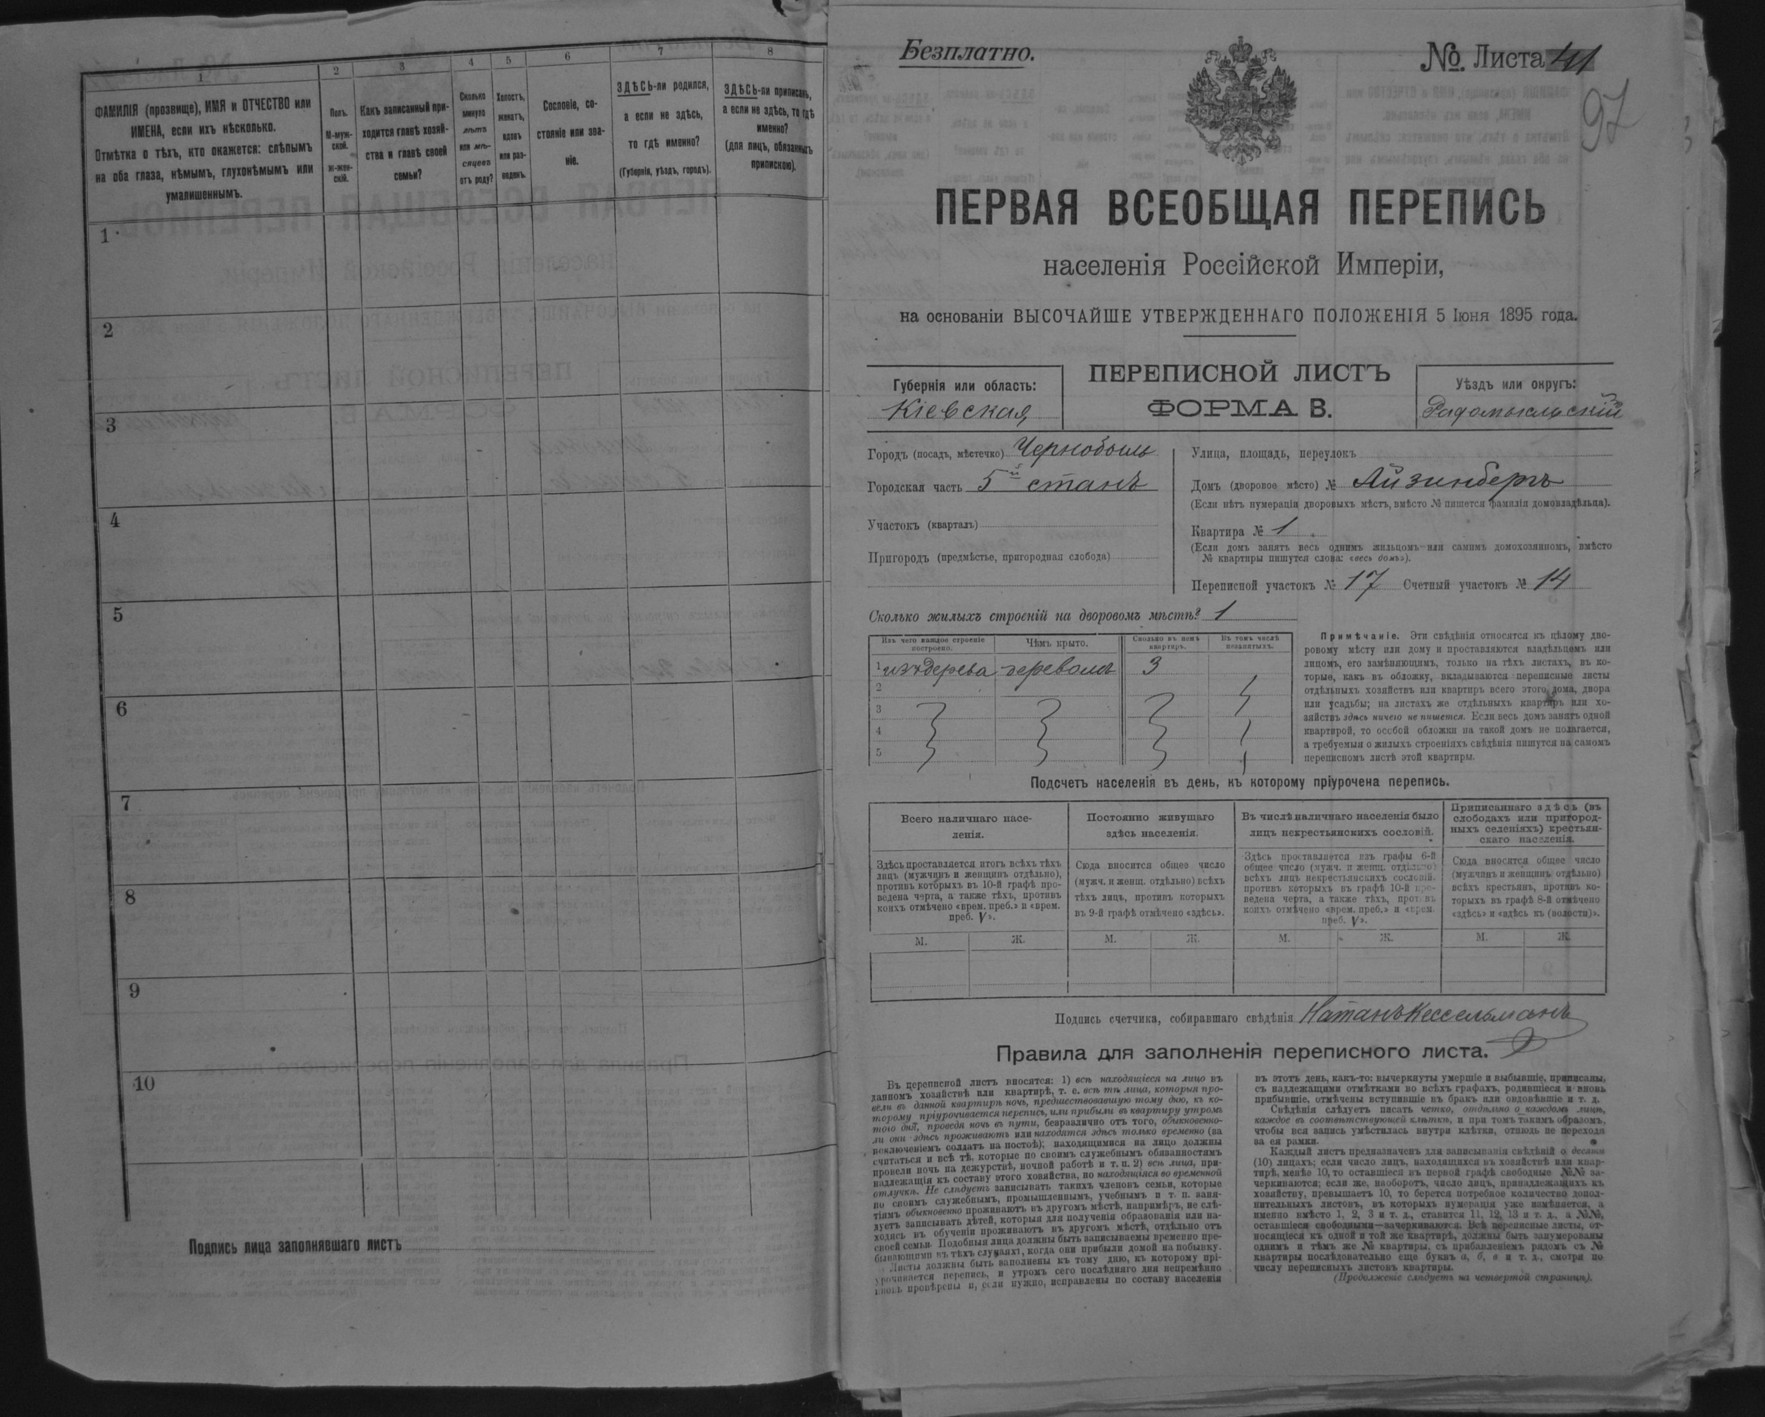 1 2 3 4 5 6 7 8
ФАМИЛІЯ (прозвище), ИМЯ и ОТЧЕСТВО или
ИМЕНА, если ихъ нѣсколько.
Отмѣтка о тѣхъ, кто окажется: слѣпымъ
на оба глаза, нѣмымъ, глухонѣмымъ или
умалишеннымъ.
Полъ.
М-муж-
ской.
Ж-жен-
скій.
Какъ записанный при-
ходится главѣ хозяй-
ства и главѣ своей
семьи?
Сколько
минуло
лѣтъ
или мѣ-
сяцевъ
отъ роду?
Холостъ,
женатъ,
вдовъ
или раз-
веденъ.
Сословіе, со-
стояніе или зва-
ніе.
ЗДѢСЬ-ли родился,
а если не здѣсь,
то гдѣ именно?
(Губернія, уѣздъ, городъ).
ЗДѢСЬ-ли приписанъ,
а если не здѣсь, то гдѣ
именно?
(для лицъ, обязанныхъ
припискою).
1
2
3
4
5
6
7
8
9
10
Подпись лица заполнявшаго листъ
Безплатно.
№. Листа 41
97
ПЕРВАЯ ВСЕОБЩАЯ ПЕРЕПИСЬ
населенія Россійской Имперіи,
на основаніи ВЫСОЧАЙШЕ УТВЕРЖДЕННАГО ПОЛОЖЕНІЯ 5 Іюня 1895 года.
Губернія или область:
Кіевская
ПЕРЕПИСНОЙ ЛИСТЪ
ФОРМА В.
Уѣздъ или округъ:
Радомысльскій
Городъ (посадъ, мѣстечко) Чернобыль
Городская часть 5й станъ
Участокъ (кварталъ)
Пригородъ (предмѣстье, пригородная слобода)
Улица, площадь, переулокъ
Домъ (дворовое мѣсто) № Айзинбергъ
(Если нѣтъ нумераціи дворовыхъ мѣстъ, вмѣсто № пишется фамилія домовладѣльца).
Квартира № 1
(Если домъ занятъ весь однимъ жильцомъ или самимъ домохозяиномъ, вмѣсто
№ квартиры пишутся слова: «весь домъ»).
Переписной участокъ № 17 Счетный участокъ № 14
Сколько жилыхъ строеній на дворовомъ мѣстѣ? 1
Изъ чего каждое строеніе
построено.
Чѣмъ крыто.
Сколько въ немъ
квартиръ.
Въ томъ числѣ
незанятыхъ.
1 изъ дерева деревомъ 3
2
3
4
5
Примѣчаніе. Эти свѣдѣнія относятся къ цѣлому дво-
ровому мѣсту или дому и проставляются владѣльцемъ или
лицомъ, его замѣняющимъ, только на тѣхъ листахъ, въ ко-
торые, какъ въ обложку, вкладываются переписные листы
отдѣльныхъ хозяйствъ или квартиръ всего этого дома, двора
или усадьбы; на листахъ же отдѣльныхъ квартиръ или хо-
зяйствъ здѣсь ничего не пишется. Если весь домъ занятъ одной
квартирой, то особой обложки на такой домъ не полагается,
а требуемыя о жилыхъ строеніяхъ свѣдѣнія пишутся на самомъ
переписномъ листѣ этой квартиры.
Подсчетъ населенія въ день, къ которому пріурочена перепись.
Всего наличнаго насе-
ленія.
Постоянно живущаго
здѣсь населенія.
Въ числѣ наличнаго населенія было
лицъ некрестьянскихъ сословій.
Приписаннаго здѣсь (въ
слободахъ или пригород-
ныхъ селеніяхъ) крестьян-
скаго населенія.
Здѣсь проставляется итогъ всѣхъ тѣхъ
лицъ (мужчинъ и женщинъ отдѣльно),
противъ которыхъ въ 10-й графѣ про-
ведена черта, а также тѣхъ, противъ
коихъ отмѣчено «врем. преб.» и «врем.
преб. V».
Сюда вносится общее число
(мужч. и женщ. отдѣльно) всѣхъ
тѣхъ лицъ, противъ которыхъ
въ 9-й графѣ отмѣчено «здѣсь».
Здѣсь проставляется изъ графы 6-й
общее число (мужч. и женщ. отдѣльно)
всѣхъ лицъ некрестьянскихъ сословій,
противъ которыхъ въ графѣ 10-й про-
ведена черта, а также тѣхъ, противъ
коихъ отмѣчено «врем. преб.» и «врем.
преб. V».
Сюда вносится общее число
(мужчинъ и женщинъ отдѣльно)
всѣхъ крестьянъ, противъ ко-
торыхъ въ графѣ 8-й отмѣчено
«здѣсь» и «здѣсь къ (волости)».
М. Ж. М. Ж. М. Ж. М. Ж.
Подпись счетчика, собиравшаго свѣдѣнія Натанъ Кессельманъ
Правила для заполненія переписного листа.
Въ переписной листъ вносятся: 1) всѣ находящіеся на лицо въ
данномъ хозяйствѣ или квартирѣ, т. е. всѣ тѣ лица, которыя про-
вели въ данной квартирѣ ночь, предшествовавшую тому дню, къ ко-
торому пріурочивается перепись, или прибыли въ квартиру утромъ
того дня, проведя ночь въ пути, безразлично отъ того, обыкновенно-
ли они здѣсь проживаютъ или находятся здѣсь только временно (за
исключеніемъ солдатъ на постоѣ); находящимися на лицо должны
считаться и всѣ тѣ, которые по своимъ служебнымъ обязанностямъ
провели ночь на дежурствѣ, ночной работѣ и т. п. 2) всѣ лица, при-
надлежащія къ составу этого хозяйства, но находящіяся во временной
отлучкѣ. Не слѣдуетъ записывать такихъ членовъ семьи, которые
по своимъ служебнымъ, промышленнымъ, учебнымъ и т. п. заня-
тіямъ обыкновенно проживаютъ въ другомъ мѣстѣ, напримѣръ, не слѣ-
дуетъ записывать дѣтей, которыя для полученія образованія или на-
ходясь въ обученіи проживаютъ въ другомъ мѣстѣ, отдѣльно отъ
своей семьи. Подобныя лица должны быть записываемы временно пре-
бывающими въ тѣхъ случаяхъ, когда они прибыли домой на побывку.
Листы должны быть заполнены къ тому дню, къ которому прі-
урочивается перепись, и утромъ сего послѣдняго дня непремѣнно
вновь провѣрены и, если нужно, исправлены по составу населенія
въ этотъ день, какъ-то: вычеркнуты умершіе и выбывшіе, приписаны,
съ надлежащими отмѣтками во всѣхъ графахъ, родившіеся и вновь
прибывшіе, отмѣчены вступившіе въ бракъ или овдовѣвшіе и т. д.
Свѣдѣнія слѣдуетъ писать четко, отдѣльно о каждомъ лицѣ,
каждое въ соотвѣтствующей клѣткѣ, и при томъ такимъ образомъ,
чтобы вся запись умѣстилась внутри клѣтки, отнюдь не переходя
за ея рамки.
Каждый листъ предназначенъ для записыванія свѣдѣній о десяти
(10) лицахъ; если число лицъ, находящихся въ хозяйствѣ или квар-
тирѣ, менѣе 10, то оставшіеся въ первой графѣ свободные №№ за-
черкиваются; если же, наоборотъ, число лицъ, принадлежащихъ къ
хозяйству, превышаетъ 10, то берется потребное количество допол-
нительныхъ листовъ, въ которыхъ нумерація уже измѣняется, а
именно вмѣсто 1, 2, 3 и т. д., ставится 11, 12, 13 и т. д., а №№,
оставшіеся свободными—зачеркиваются. Всѣ переписные листы, от-
носящіеся къ одной и той же квартирѣ, должны быть занумерованы
однимъ и тѣмъ же № квартиры, съ прибавленіемъ рядомъ съ №
квартиры послѣдовательно еще буквъ а, б, в и т. д., смотря по
числу переписныхъ листовъ квартиры.
(Продолженіе слѣдуетъ на четвертой страницѣ).